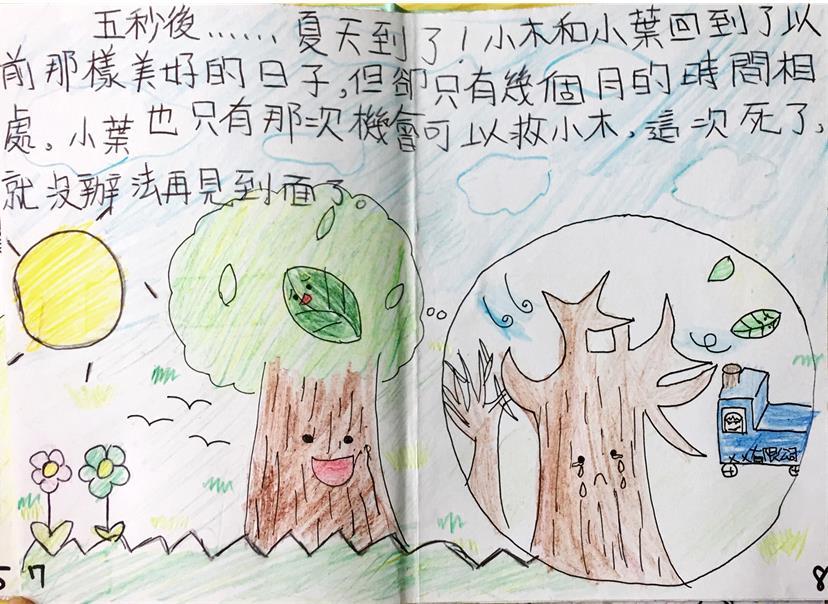 五秒後……夏天到了!小木和小葉回到了以
前那樣美好的日子,但卻只有幾個月的時間相
處。小葉也只有那次機會可以救小木,這次死了,
就沒辦法再見到面了。
XX有限公司
5 7
8